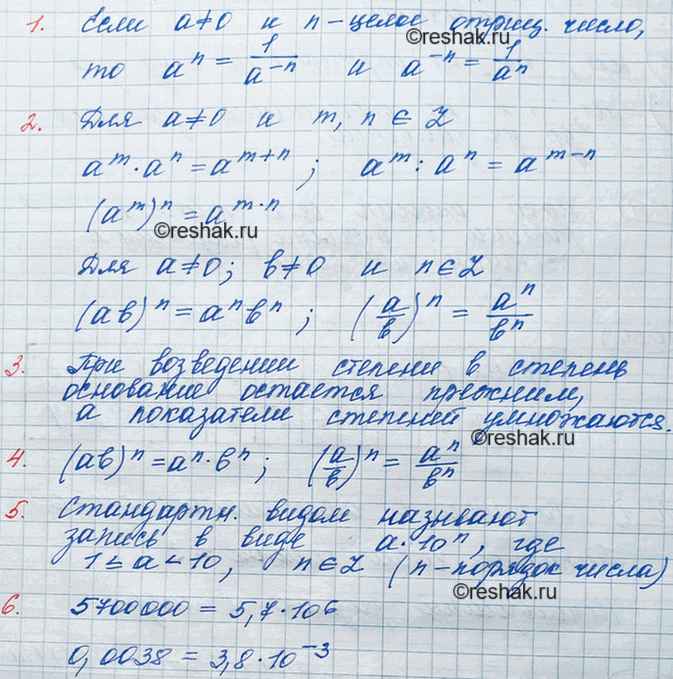 1. Если a≠0 и n – целое отриц. число,
©reshak.ru
то aⁿ = 1/a⁻ⁿ и a⁻ⁿ = 1/aⁿ
2. Для a≠0 и m, n ∈ Z
aᵐ · aⁿ = aᵐ⁺ⁿ ; aᵐ : aⁿ = aᵐ⁻ⁿ
(aᵐ)ⁿ = aᵐ·ⁿ
©reshak.ru
Для a≠0; в≠0 и n∈Z
(aв)ⁿ = aⁿвⁿ ; (a/в)ⁿ = aⁿ/вⁿ
3. При возведении степени в степень
основание остается прежним,
а показатели степеней умножаются.
©reshak.ru
4. (aв)ⁿ = aⁿ · вⁿ ; (a/в)ⁿ = aⁿ/вⁿ
5. Стандартн. видом называют
запись в виде a · 10ⁿ, где
1 ≤ a < 10, n∈Z (n – порядок числа)
©reshak.ru
6. 5700000 = 5,7 · 10⁶
0,0038 = 3,8 · 10⁻³